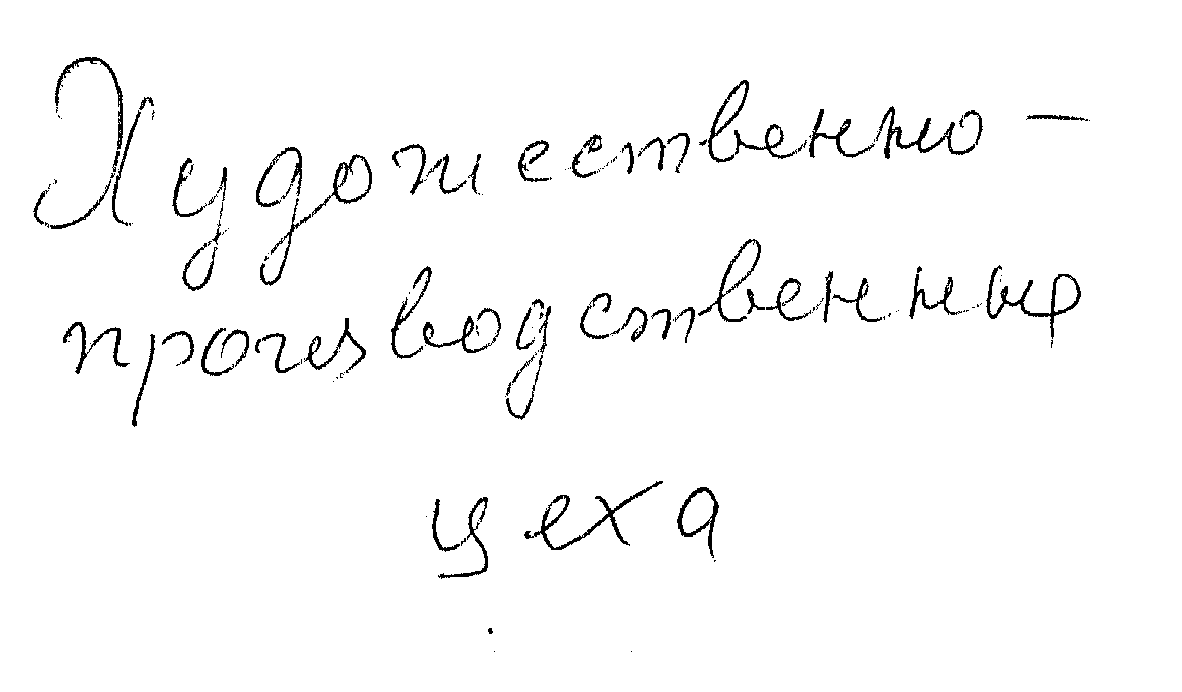 Художественно-
производственные
цеха